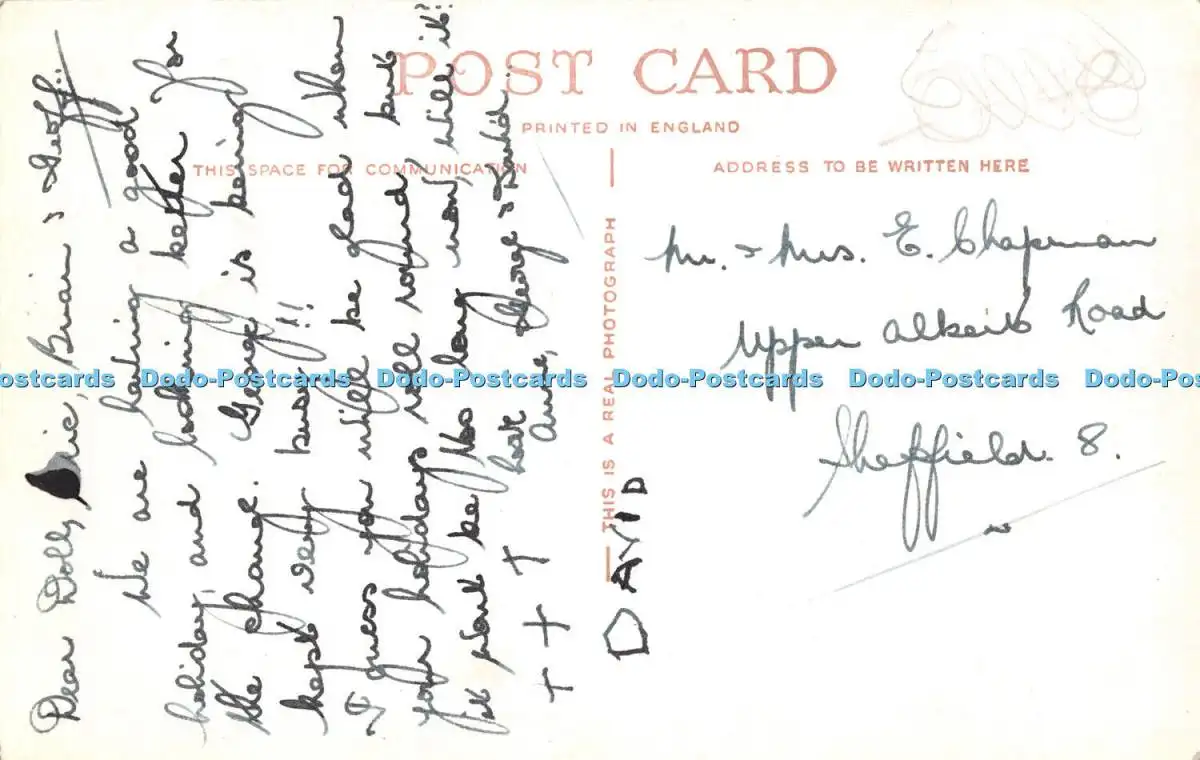 POST CARD
PRINTED IN ENGLAND
THIS SPACE FOR COMMUNICATION
ADDRESS TO BE WRITTEN HERE
THIS IS A REAL PHOTOGRAPH
Dear Dolly, Brian & Geoff:
We are having a good
holiday, and looking better for
the change. George is being
kept very busy!!
I guess you will be glad when
your holidays roll round but
it wont be too long now, will it!
Anne, George & David
DAVID
Mr. & Mrs. E. Chapman
Upper Albert Road
Sheffield. 8.
Dodo-Postcards Dodo-Postcards Dodo-Postcards Dodo-Postcards